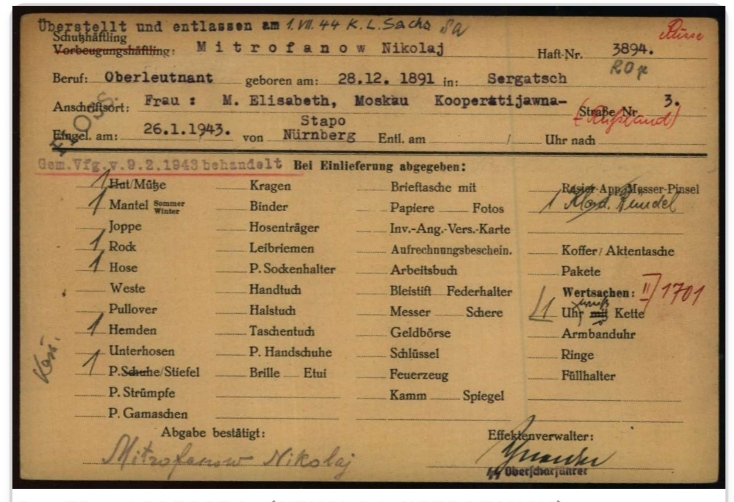 Überstellt und entlassen am 1.VII.44 K.L. Sachs
Schutzhäftling
Vorbeugungshäftling: Mitrofanow Nikolaj Haft-Nr. 3894.
Beruf: Oberleutnant geboren am: 28.12. 1891 in: Sergatsch
Anschriftsort: Frau : M. Elisabeth, Moskau Kooperatijawna- Straße Nr. 3.
(Rußland)
FLOSS.
Eingel. am: 26.1.1943. von Stapo Nürnberg Entl. am / Uhr nach
Gem.Vfg.v.9.2.1943 behandelt Bei Einlieferung abgegeben:
1 Hut/Mütze Kragen Brieftasche mit Rasier-App. Messer-Pinsel
1 Mantel Sommer Winter Binder Papiere Fotos 1
Joppe Hosenträger Inv.-Ang.-Vers.-Karte
1 Rock Leibriemen Aufrechnungsbeschein. Koffer/Aktentasche
1 Hose P. Sockenhalter Arbeitsbuch Pakete
Weste Handtuch Bleistift Federhalter Wertsachen: II/1701
Pullover Halstuch Messer Schere 1 Uhr mit Kette
1 Hemden Taschentuch Geldbörse Armbanduhr
Unterhosen P. Handschuhe Schlüssel Ringe
1 P.Schuhe/Stiefel Brille Etui Feuerzeug Füllhalter
P. Strümpfe Kamm Spiegel
P. Gamaschen
Abgabe bestätigt: Effektenverwalter:
Mitrofanow Nikolaj
Oberscharführer